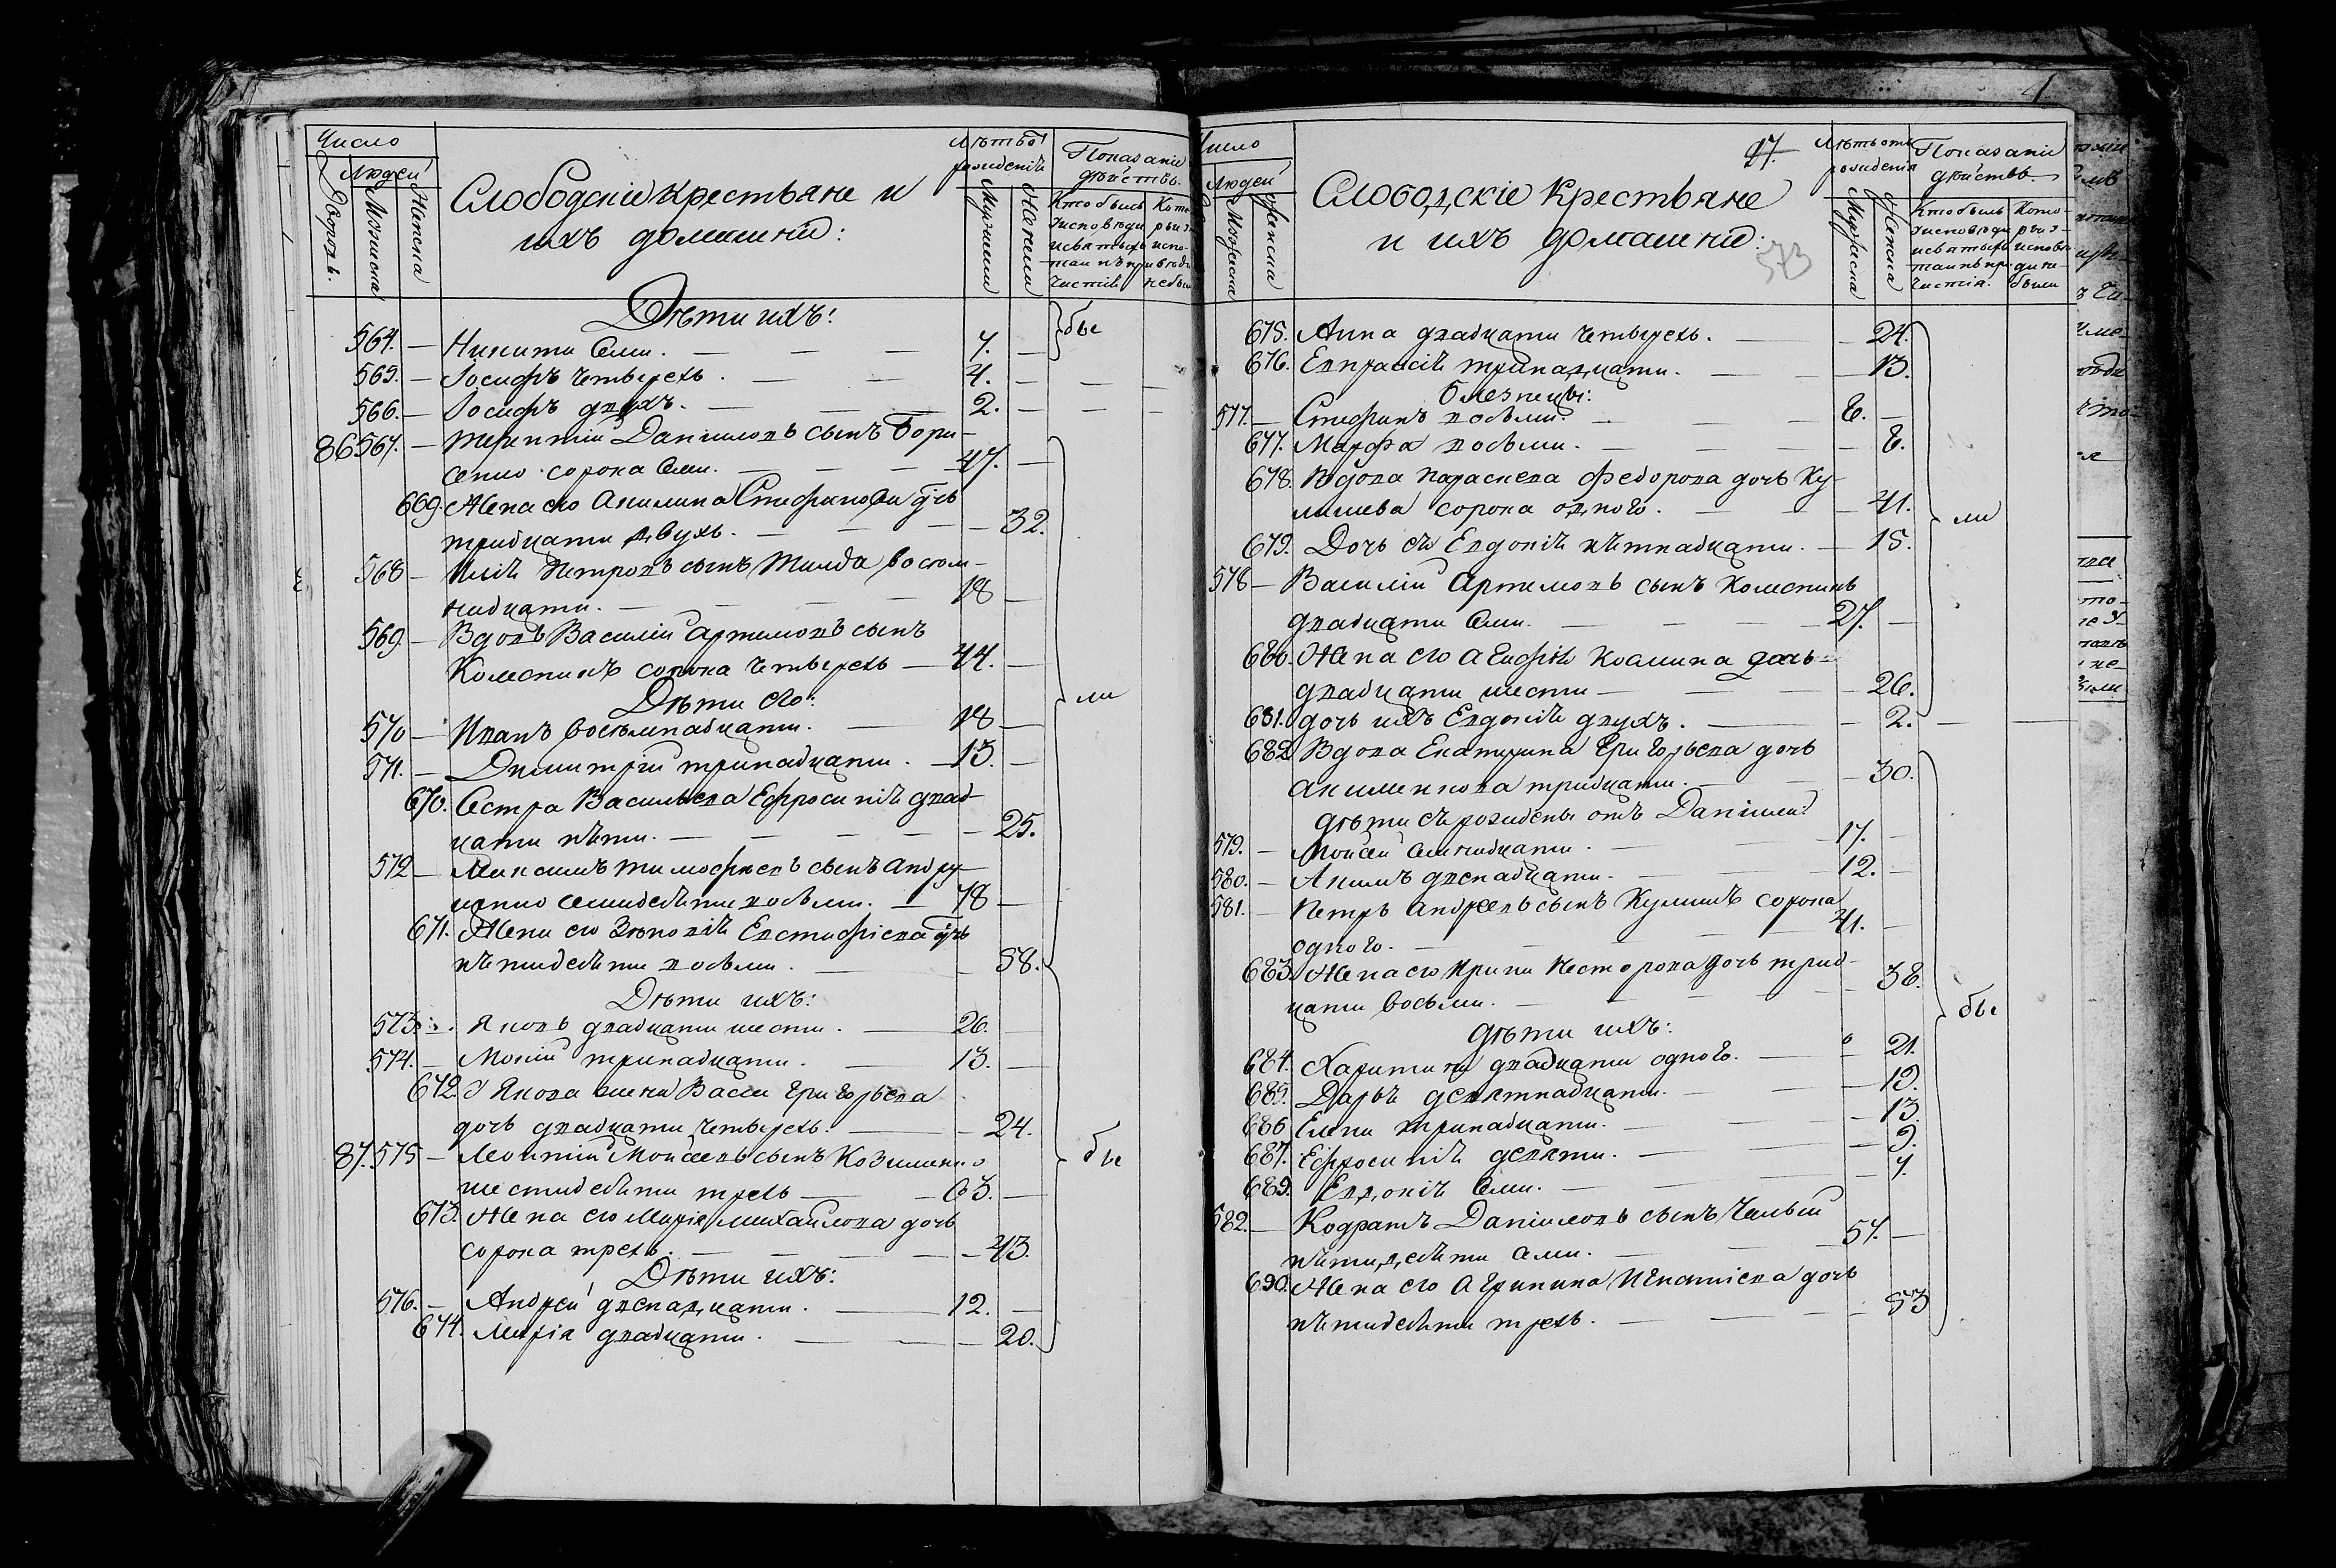 Число
Людей
Дворовъ.
Мужеска
Женска
Слободскіе крестьяне и
ихъ домашніе:
Лѣтъ отъ
рожденія
Показаніе
дѣйствъ.
Кто былъ
Дѣти ихъ:
564. — Никита семи. — — — 7. —
565. — Іосифъ четырехъ. — — 4. — — —
566. — Іосифъ двухъ. — — — 2. — — —
бы
86 567. — Терентій Даніиловъ сынъ Бори-
сенко сорока семи. — — — 47. —
669. Жена его Акилина Стефанова дочь
тридцати двухъ. — — — — 32.
568 — Илія Петровъ сынъ восем-
надцати. — — — — 18 —
569. — Вдовъ Василій Артемовъ сынъ
сорока четырехъ — 44. —
Дѣти его:
ли
570 — Иванъ восемьнадцати. — 18 —
571. — Димитрій тринадцати. — 13. —
670. Сестра Васильева Ефросинія двад-
цати пяти. — — — — — 25.
572 — Максимъ Тимофѣевъ сынъ Андру-
щенко семидесяти восьми. — 78 —
671. Жена его Зѣновія Евстафіева дочь
пятидесяти восьми. — — 58.
Дѣти ихъ:
573. Яковъ двадцати шести. — 26. —
574. — Мокій тринадцати. — 13. —
672. У Якова жена Васса Григорьева
дочь двадцати четырехъ. — — 24.
87. 575 — Леонтій Моисеевъ сынъ Козименко
шестидесяти трехъ — — 63. —
бы
673. Жена его Марія Михайлова дочь
сорока трехъ. — — — — 43.
Дѣти ихъ:
576. — Андрей двенадцати. — 12. —
674. Марія двадцати. — — — 20.
Число
Людей
Мужеска
Женска
17.
Слободскіе крестьяне
и ихъ домашніе:
573
Лѣтъ отъ
рожденія
Мужеска
Женска
Показаніе
дѣйствъ.
Кто былъ Кото-
у исповѣди рые у
и святыхъ исповѣ-
таинъ при- ди не-
частія. были
675. Анна двадцати четырехъ. — — 24.
676. Евпраксія тринадцати. — — 13.
Близнецы:
577. — Стефанъ восьми. — — 8. —
677. Марфа восьми. — — — 8.
678. Вдова Параскева Федорова дочь Ку-
лишева сорока одного. — — — 41.
ли
679. Дочь ея Евдокія пятнадцати. — 15.
578 — Василій Артемовъ сынъ
двадцати семи. — — — 27. —
680. Жена его Агафія Косьмина дочь
двадцати шести — — — 26.
681. дочь ихъ Евдокія двухъ. — — 2. — —
682. Вдова Екатерина Григорьева дочь
Акименкова тридцати. — — — 30.
дѣти ея рожденные отъ Даніила:
579. — Моисей семнадцати. — 17. —
580. — Акимъ двенадцати. — 12. —
581. — Петръ Андреевъ сынъ Кулишъ сорока
одного. — — — — 41. —
683. Жена его Ирина Несторова дочь трид-
цати восьми. — — — — 38.
бы
дѣти ихъ:
684. Харитина двадцати одного. — — 21.
685. Дарья девятнадцати. — — 19.
686. Елена тринадцати. — — — 13.
687. Ефросинія девяти. — — — 9.
689. Евдокія семи. — — — 7.
582. — Кодратъ Даніиловъ сынъ
пятидесяти семи. — — 57. —
690. Жена его Агрипина Игнатіева дочь
пятидесяти трехъ. — — — 53